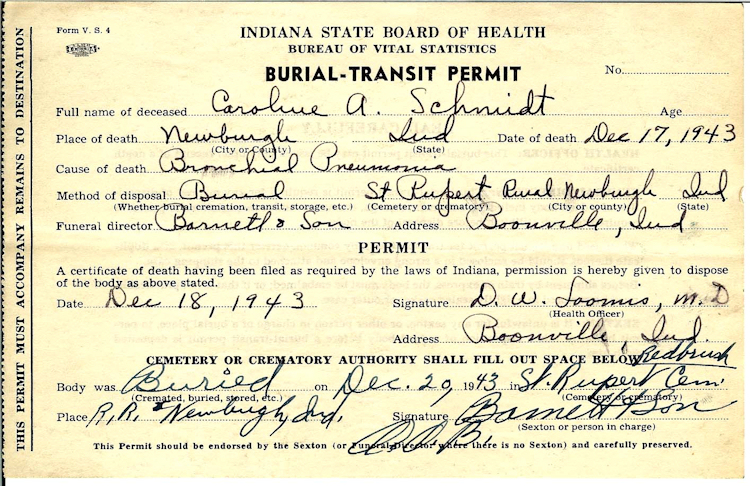 THIS PERMIT MUST ACCOMPANY REMAINS TO DESTINATION
Form V. S. 4
INDIANA STATE BOARD OF HEALTH
BUREAU OF VITAL STATISTICS
BURIAL-TRANSIT PERMIT
No.
Full name of deceased Caroline A. Schmidt Age
Place of death Newburgh Ind Date of death Dec 17, 1943
(City or County) (State)
Cause of death Bronchial Pneumonia
Method of disposal Burial St Rupert Rural Newburgh Ind
(Whether burial cremation, transit, storage, etc.) (Cemetery or crematory) (City or county) (State)
Funeral director Barnett & Son Address Boonville, Ind
PERMIT
A certificate of death having been filed as required by the laws of Indiana, permission is hereby given to dispose
of the body as above stated.
Date Dec 18, 1943 Signature D. W. Loomis, M.D
(Health Officer)
Address Boonville, Ind.
CEMETERY OR CREMATORY AUTHORITY SHALL FILL OUT SPACE BELOW Redbrush
Body was Buried on Dec. 20, 1943 in St. Rupert Cem.
(Cremated, buried, stored, etc.) (Cemetery or crematory)
Place R.R. Newburgh, Ind. Signature Barnett & Son
(Sexton or person in charge)
This Permit should be endorsed by the Sexton (or Funeral Director where there is no Sexton) and carefully preserved.